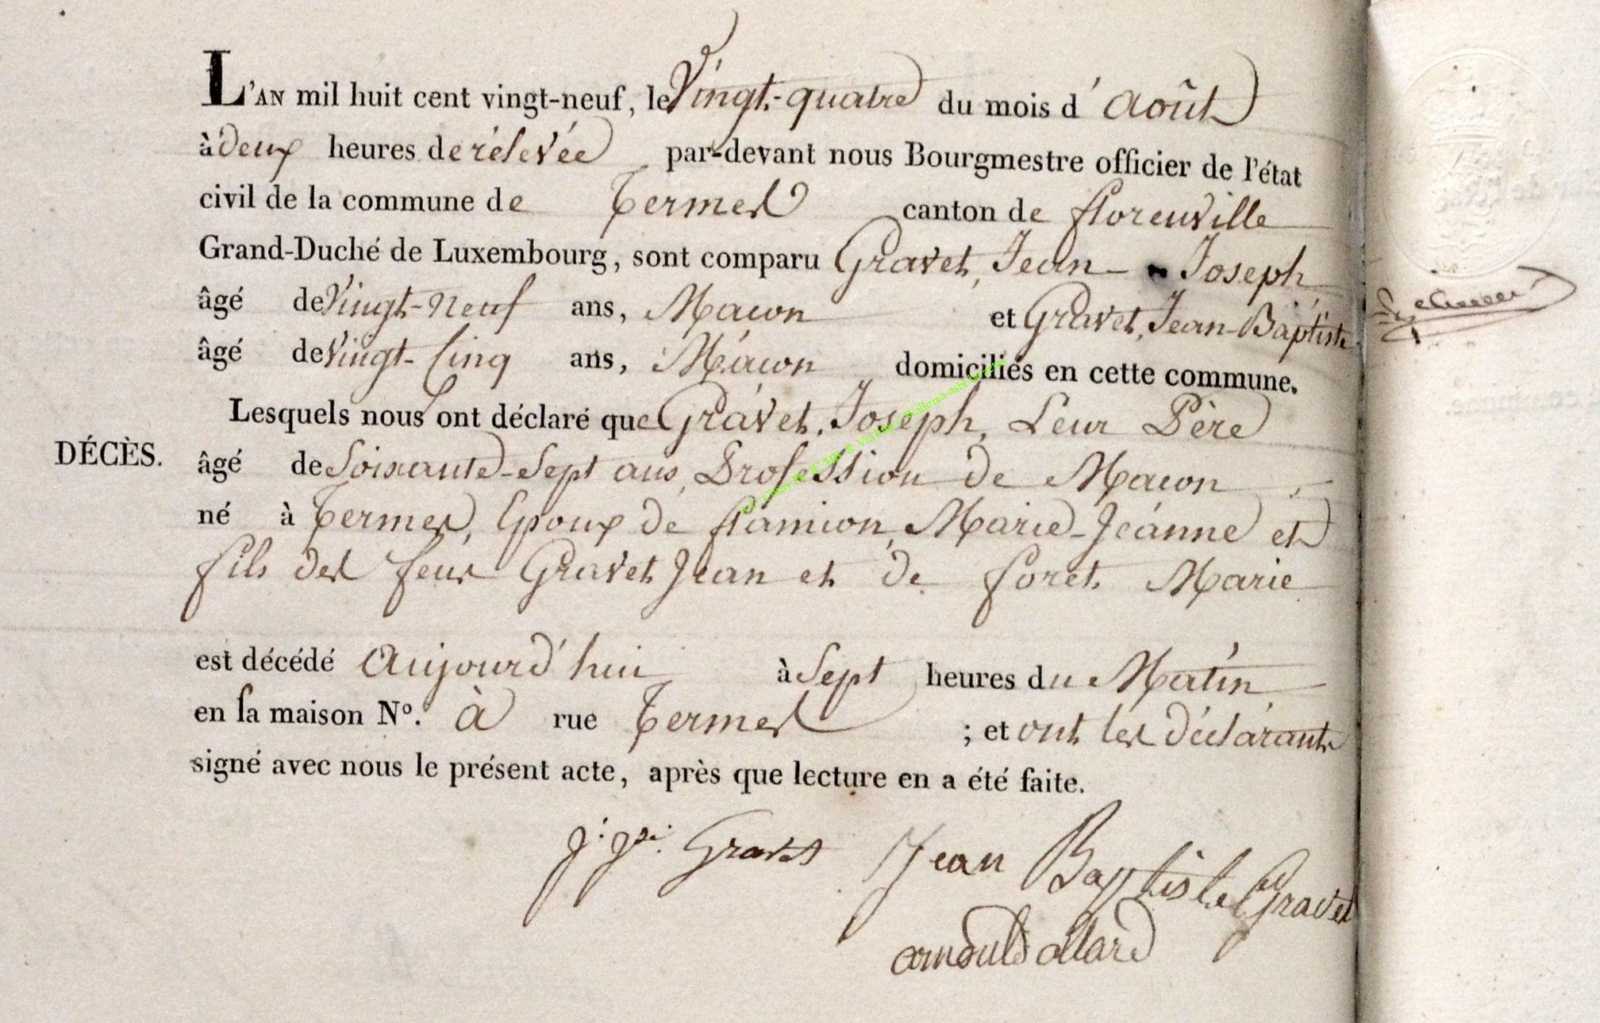 L'AN mil huit cent vingt-neuf, le Vingt-quatre du mois d'Août
à deux heures de rélevée par-devant nous Bourgmestre officier de l'état
civil de la commune de Termes canton de florenville
Grand-Duché de Luxembourg, sont comparu Gravet, Jean - Joseph
âgé de Vingt-Neuf ans, Macon et Gravet, Jean-Baptiste
âgé de Vingt-Cinq ans, Macon domiciliés en cette commune.
Lesquels nous ont déclaré que Gravet, Joseph, Leur Père
DÉCÈS. âgé de Soixante-Sept ans, Profession de Macon
né à Termes, Epoux de flamion, Marie-Jeánne et
fils des feus Gravet Jean et de foret Marie
est décédé Aujourd'hui à Sept heures du Matin
en sa maison No. à rue Termes ; et ont les déclárants
signé avec nous le présent acte, après que lecture en a été faite.
J. Jh. Gravet Jean Baptiste Gravet
arnould allard